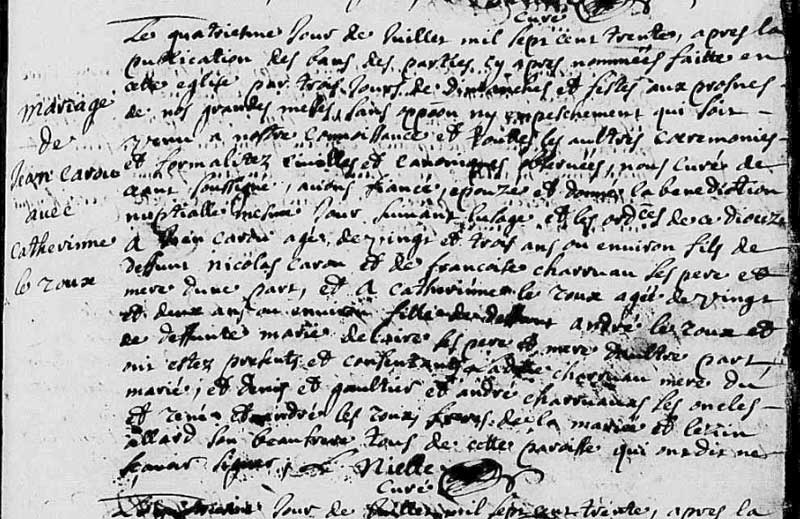 Curé
Le quatrienne Jour de Juillet mil sept cent trente, apres la
publication des bans des parties cy apres nommées faitte en
cette eglise par trois Jours de dimanches et festes aux prosnes
de nos grandes messes, sans oppoon ny empeschement qui soit
venu a nostre connoissance et touttes les aultres cæremonies
et formalitez civilles et canoniques observées, nous Curé de
soussigné, avons fiancé, epouzé et donné la benediction
nuptialle mesme Jour, suivant lusage et les ordces de ce dioceze
A Jean Carou agé de vingt et trois ans ou environ fils de
deffunt Nicolas Carou et de francoise charruau ses pere et
mere dune part, et A Catherinne le roux agée de vingt
et deux ans ou environ fille de deffunt andré le roux et
de deffunte marie delaire ses pere et mere daultre part,
ont estez presents et consentants ladte charruau mere du
marié, et denis et gaultier et andré charruaux ses oncles
et rené et andré les roux freres de la mariée et
allard son beaufrere tous de cette paroisse qui ont dit ne
scavoir signer, Nielle
Curé
Mariage
de
Jean Carou
avec
Catherinne
le roux
Jour de Juillet mil sept cent trente, apres la